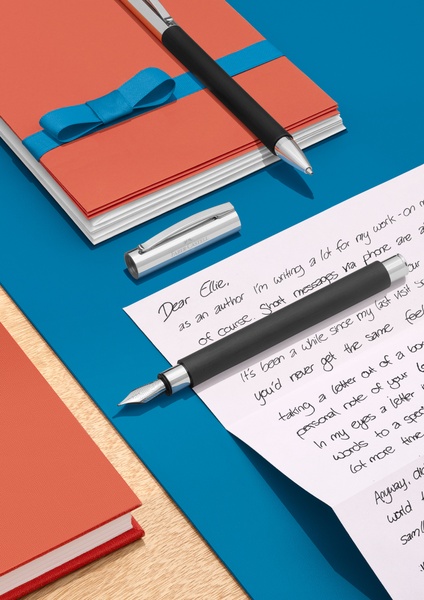 Dear Ellie,
as an author I'm writing a lot for my work - on
of course. Short messages via phone are
It's been a while since my last visit
you'd never get the same
taking a letter out of a
personal note of your
In my eyes a letter
words to a
lot more time
Anyway,
world